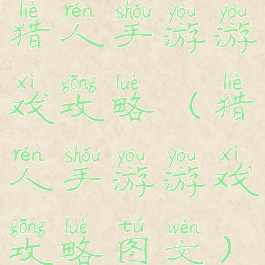 liè rén shǒu yóu yóu
猎人手游游
xì gōng lüè liè
戏攻略（猎
rén shǒu yóu yóu xì
人手游游戏
gōng lüè tú wén
攻略图文）